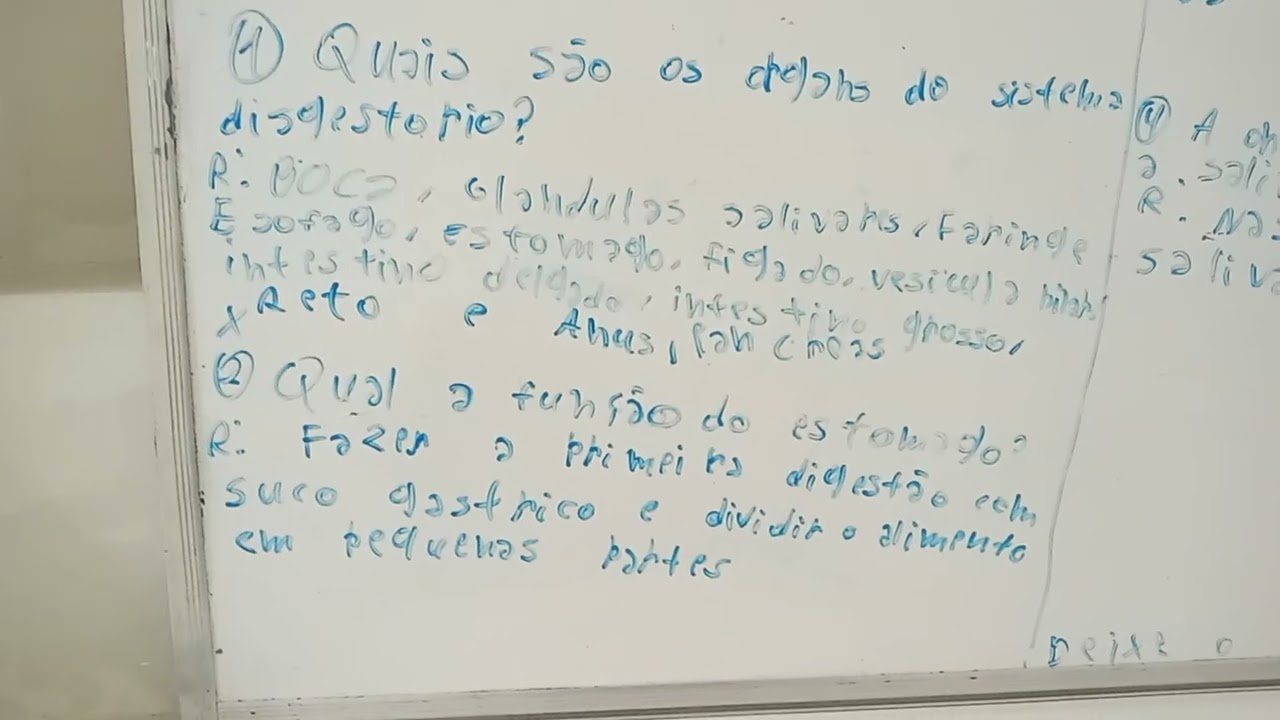 1 Quais são os órgãos do sistema
disgestorio?
R: BOCA, Glandulas salivares, Faringe
Esofago, estomago, figado, vesicula biliar
intestino delgado, intestino grosso,
x Reto e Anus, Pancreas
2 Qual a função do estomago?
R: Fazer a primeira digestão com
suco gastrico e dividir o alimento
em pequenas partes
4 A
a. sali
R. Nas
saliva
Deixe o